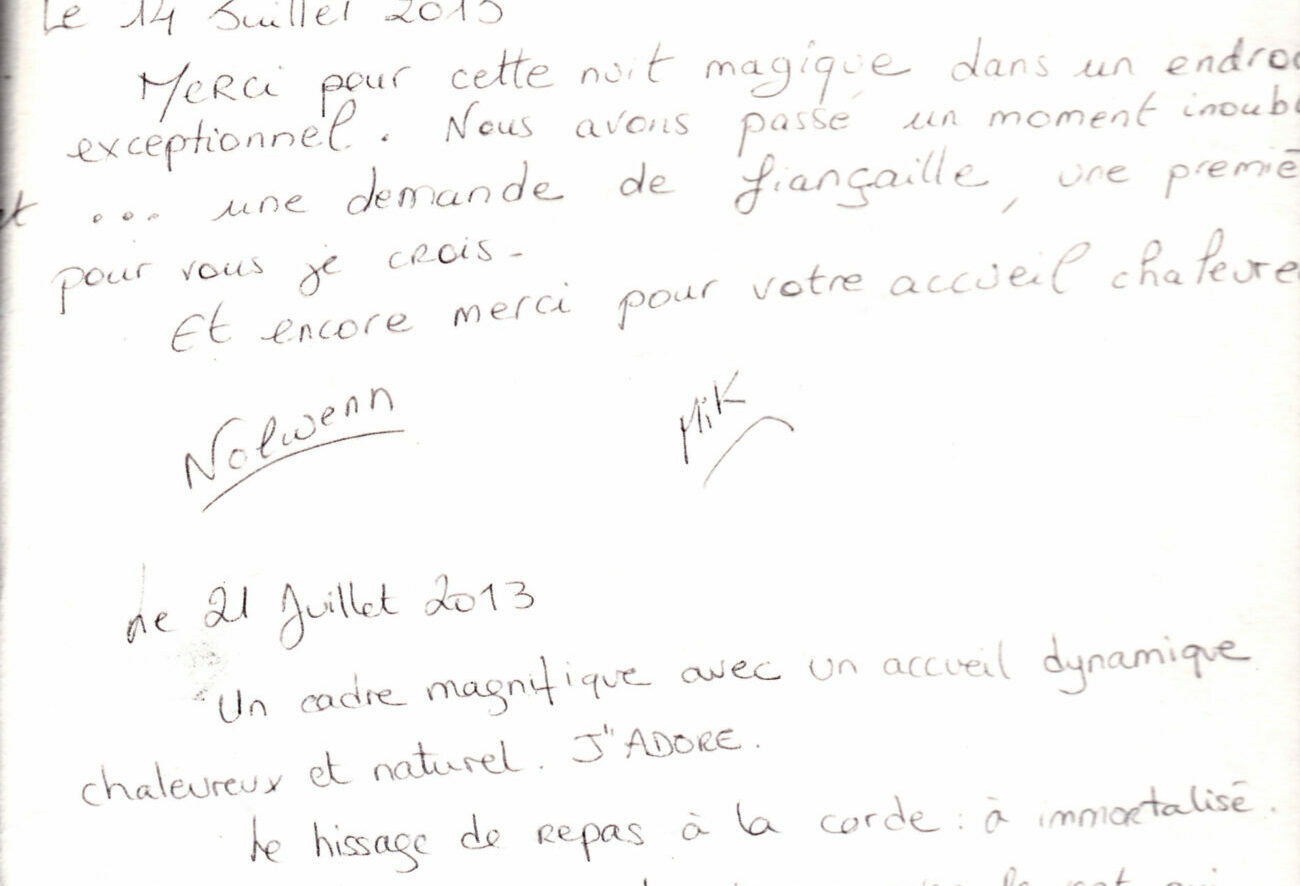 Le 14 Juillet 2013
Merci pour cette nuit magique dans un endro
exceptionnel. Nous avons passé un moment inoubl
et ... une demande de fiançaille, une premiè
pour vous je crois-
Et encore merci pour votre accueil chaleure
Nolwenn
Mik
Le 21 Juillet 2013
Un cadre magnifique avec un accueil dynamique
chaleureux et naturel. J"ADORE.
Le hissage de repas à la corde : à immortalisé.